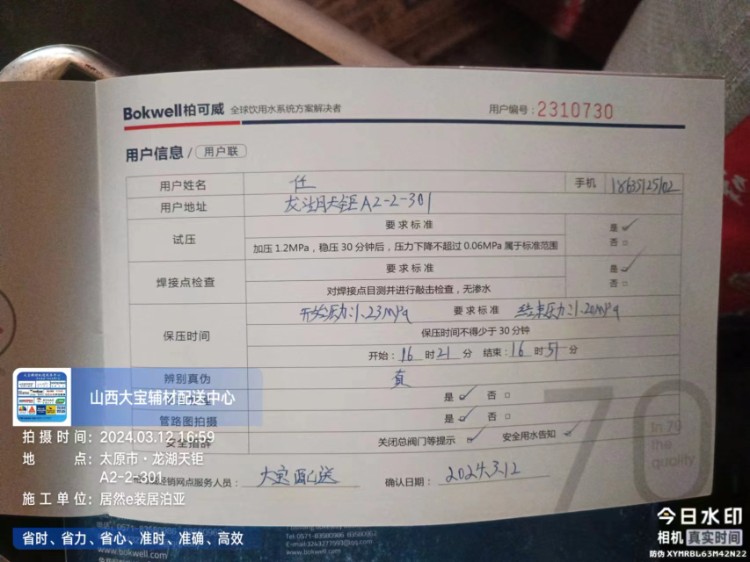 Bokwell柏可威 全球饮用水系统方案解决者
用户编号：2310730
用户信息 / 用户联
用户姓名 任 手机 18635125102
用户地址 龙湖天钜A2-2-301
试压
要求标准
加压 1.2MPa，稳压 30 分钟后，压力下降不超过 0.06MPa 属于标准范围
是 ✓
否 □
焊接点检查
要求标准
对焊接点目测并进行敲击检查，无渗水
是 ✓
否 □
保压时间
开始压力:1.23MPa 要求标准 结束压力:1.20MPa
保压时间不得少于 30 分钟
开始：16 时 21 分 结束：16 时 51 分
辨别真伪 真
是 ✓ 否 □
管路图拍摄 是 ✓ 否 □
关闭总阀门等提示 ✓ 安全用水告知 ✓
经销网点服务人员： 大宝配送 确认日期： 2024.3.12
70
In 70
the
quality
山西大宝辅材配送中心
拍摄时间：2024.03.12 16:59
地点：太原市·龙湖天钜
A2-2-301
施工单位：居然e装居泊亚
省时、省力、省心、准时、准确、高效
www.bokwell.com
今日水印
相机 真实时间
防伪 XYMRBG63M42N22